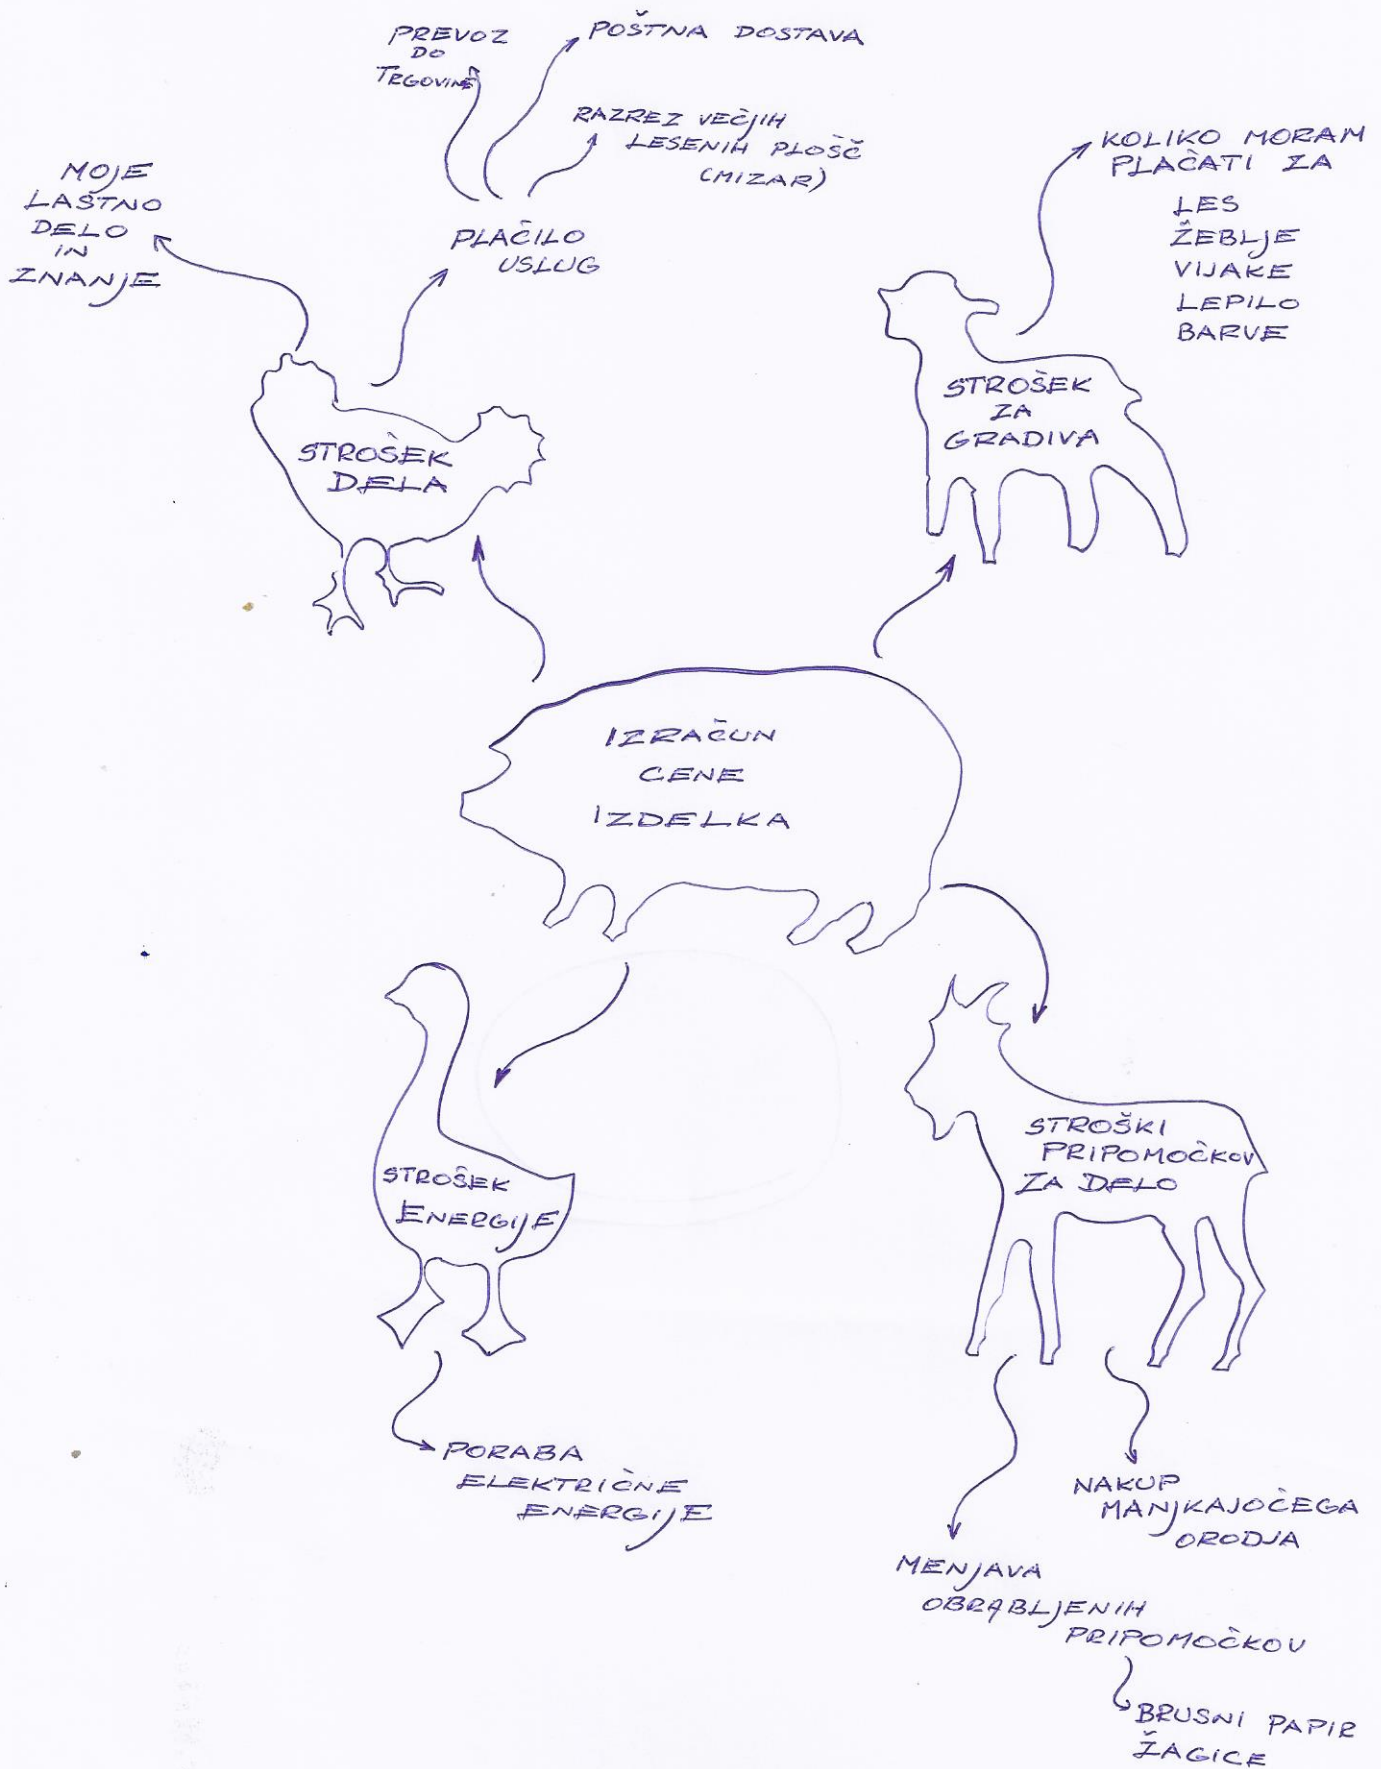 PREVOZ
DO
TRGOVINE
POŠTNA DOSTAVA
RAZREZ VEČJIH
LESENIH PLOŠČ
(MIZAR)
MOJE
LASTNO
DELO
IN
ZNANJE
PLAČILO
USLUG
KOLIKO MORAM
PLAČATI ZA
LES
ŽEBLJE
VIJAKE
LEPILO
BARVE
STROŠEK
DELA
STROŠEK
ZA
GRADIVA
IZRAČUN
CENE
IZDELKA
STROŠEK
ENERGIJE
STROŠKI
PRIPOMOČKOV
ZA DELO
PORABA
ELEKTRIČNE
ENERGIJE
NAKUP
MANJKAJOČEGA
ORODJA
MENJAVA
OBRABLJENIH
PRIPOMOČKOV
BRUSNI PAPIR
ŽAGICE